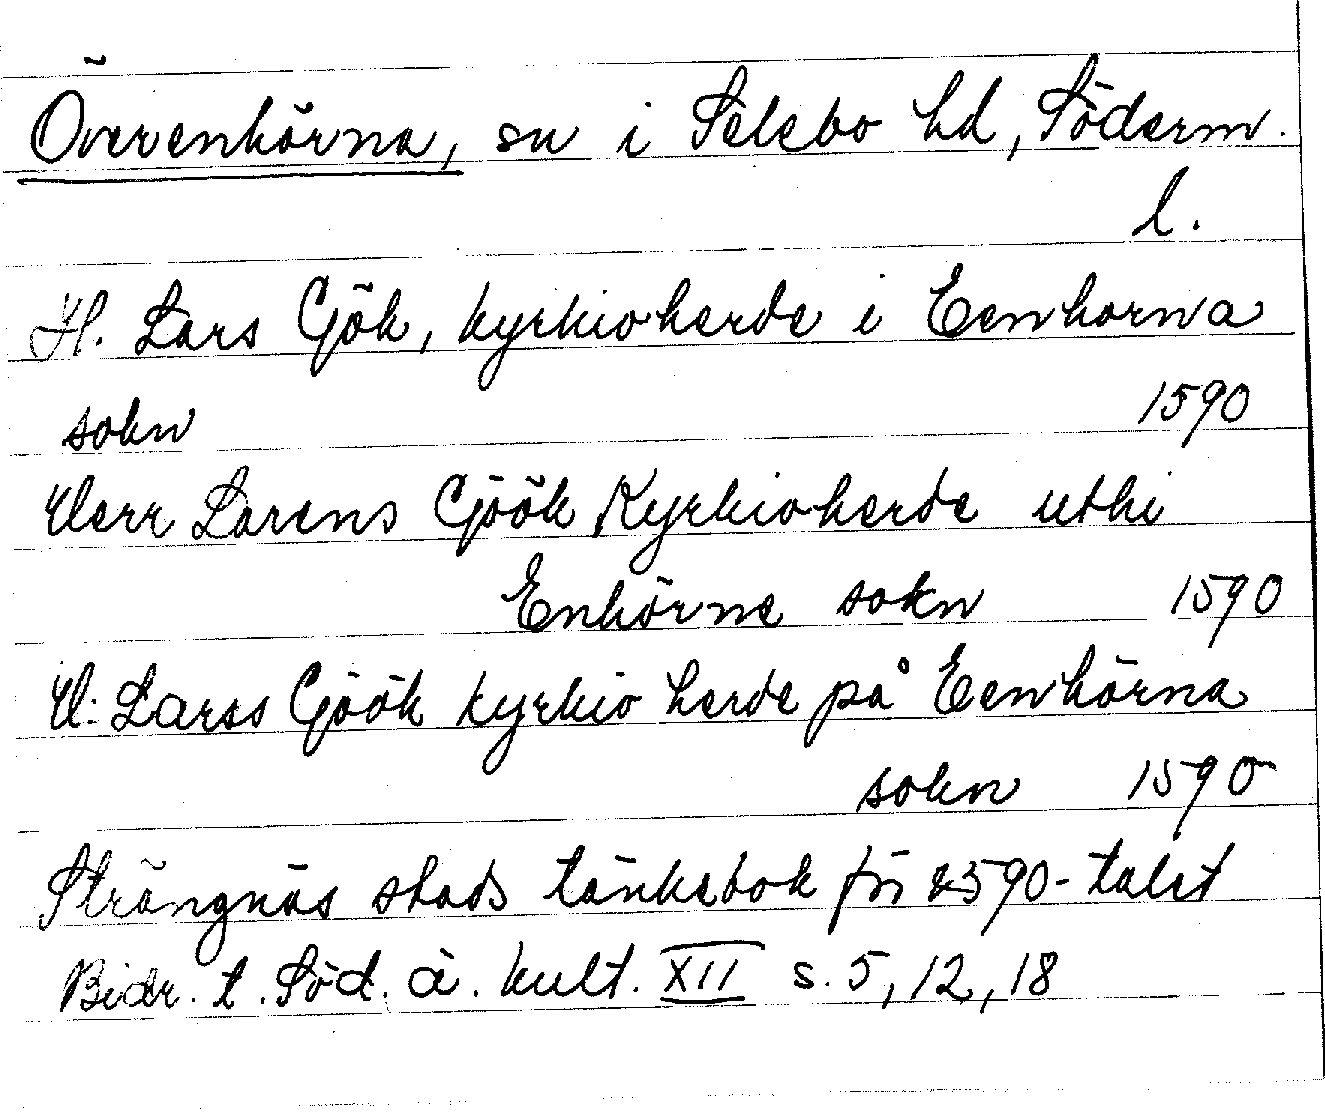 Överenhörna, sn i Selebo hd, Söderm.
l.
H. Lars Gök, kyrkioherde i Eenhorna
sokn 1590
Herr Larens Göök Kyrkioherde uthi
Enhörne sokn 1590
H: Larss Göök kyrkio herde på Eenhörna
sokn 1590
Strängnäs stads tänkebok för 1590-talet
Bidr. t. Söd. ä. kult. XII s. 5, 12, 18